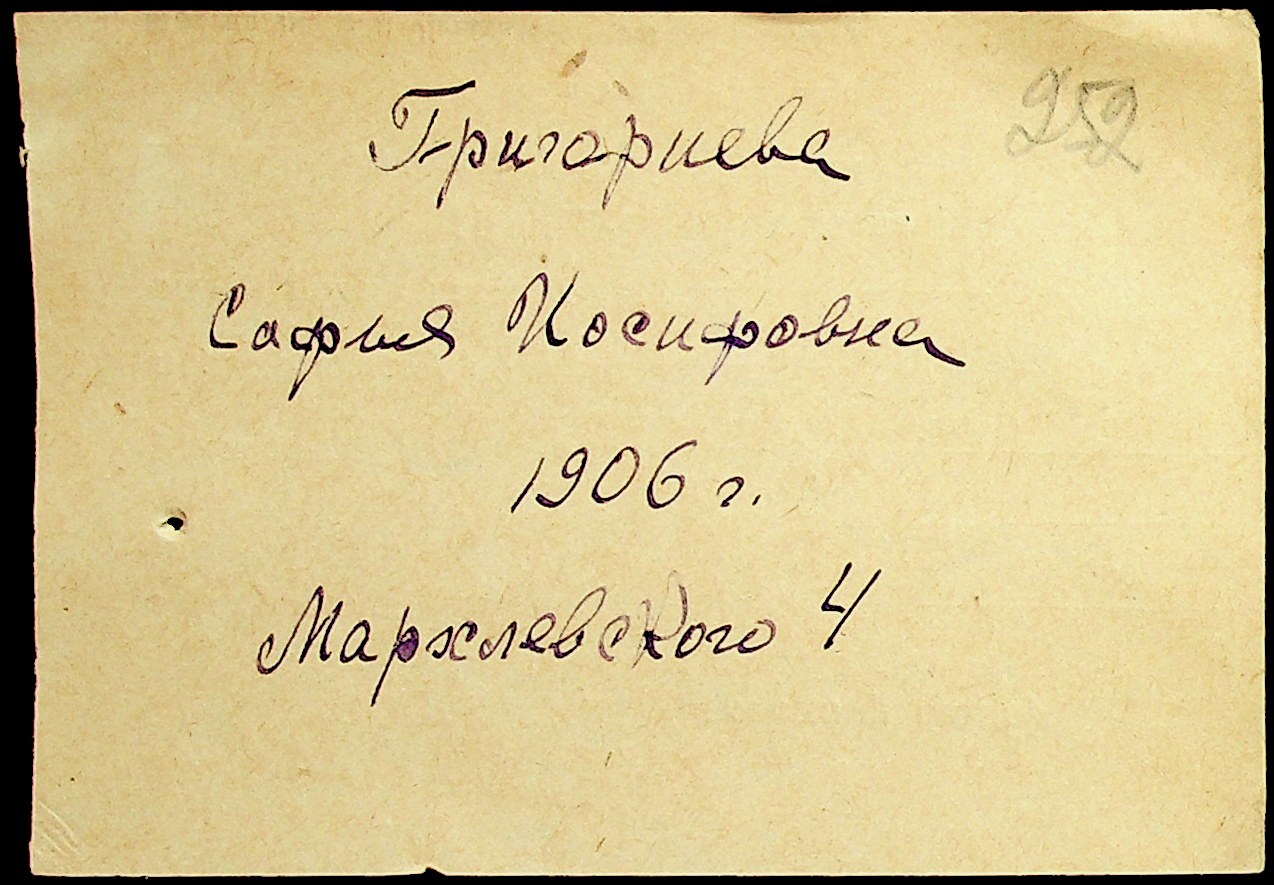 252
Григориева
Софья Иосифовна
1906 г.
Мархлевского 4